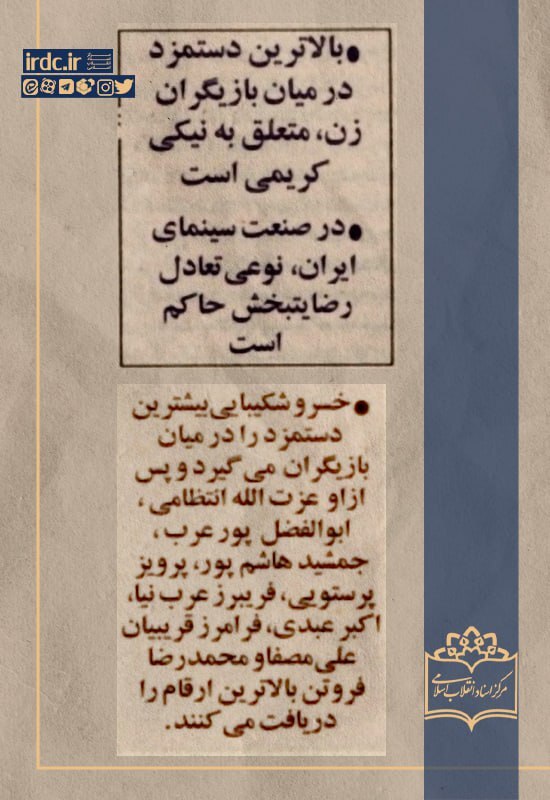 irdc.ir
•بالاترین دستمزد
در میان بازیگران
زن، متعلق به نیکی
کریمی است
•در صنعت سینمای
ایران، نوعی تعادل
رضایتبخش حاکم
است
•خسرو شکیبایی بیشترین
دستمزد را در میان
بازیگران می گیرد و پس
از او عزت الله انتظامی،
ابوالفضل پور عرب،
جمشید هاشم پور، پرویز
پرستویی، فریبرز عرب نیا،
اکبر عبدی، فرامرز قریبیان
علی مصفا و محمدرضا
فروتن بالاترین ارقام را
دریافت می کنند.
مرکز اسناد انقلاب اسلامی